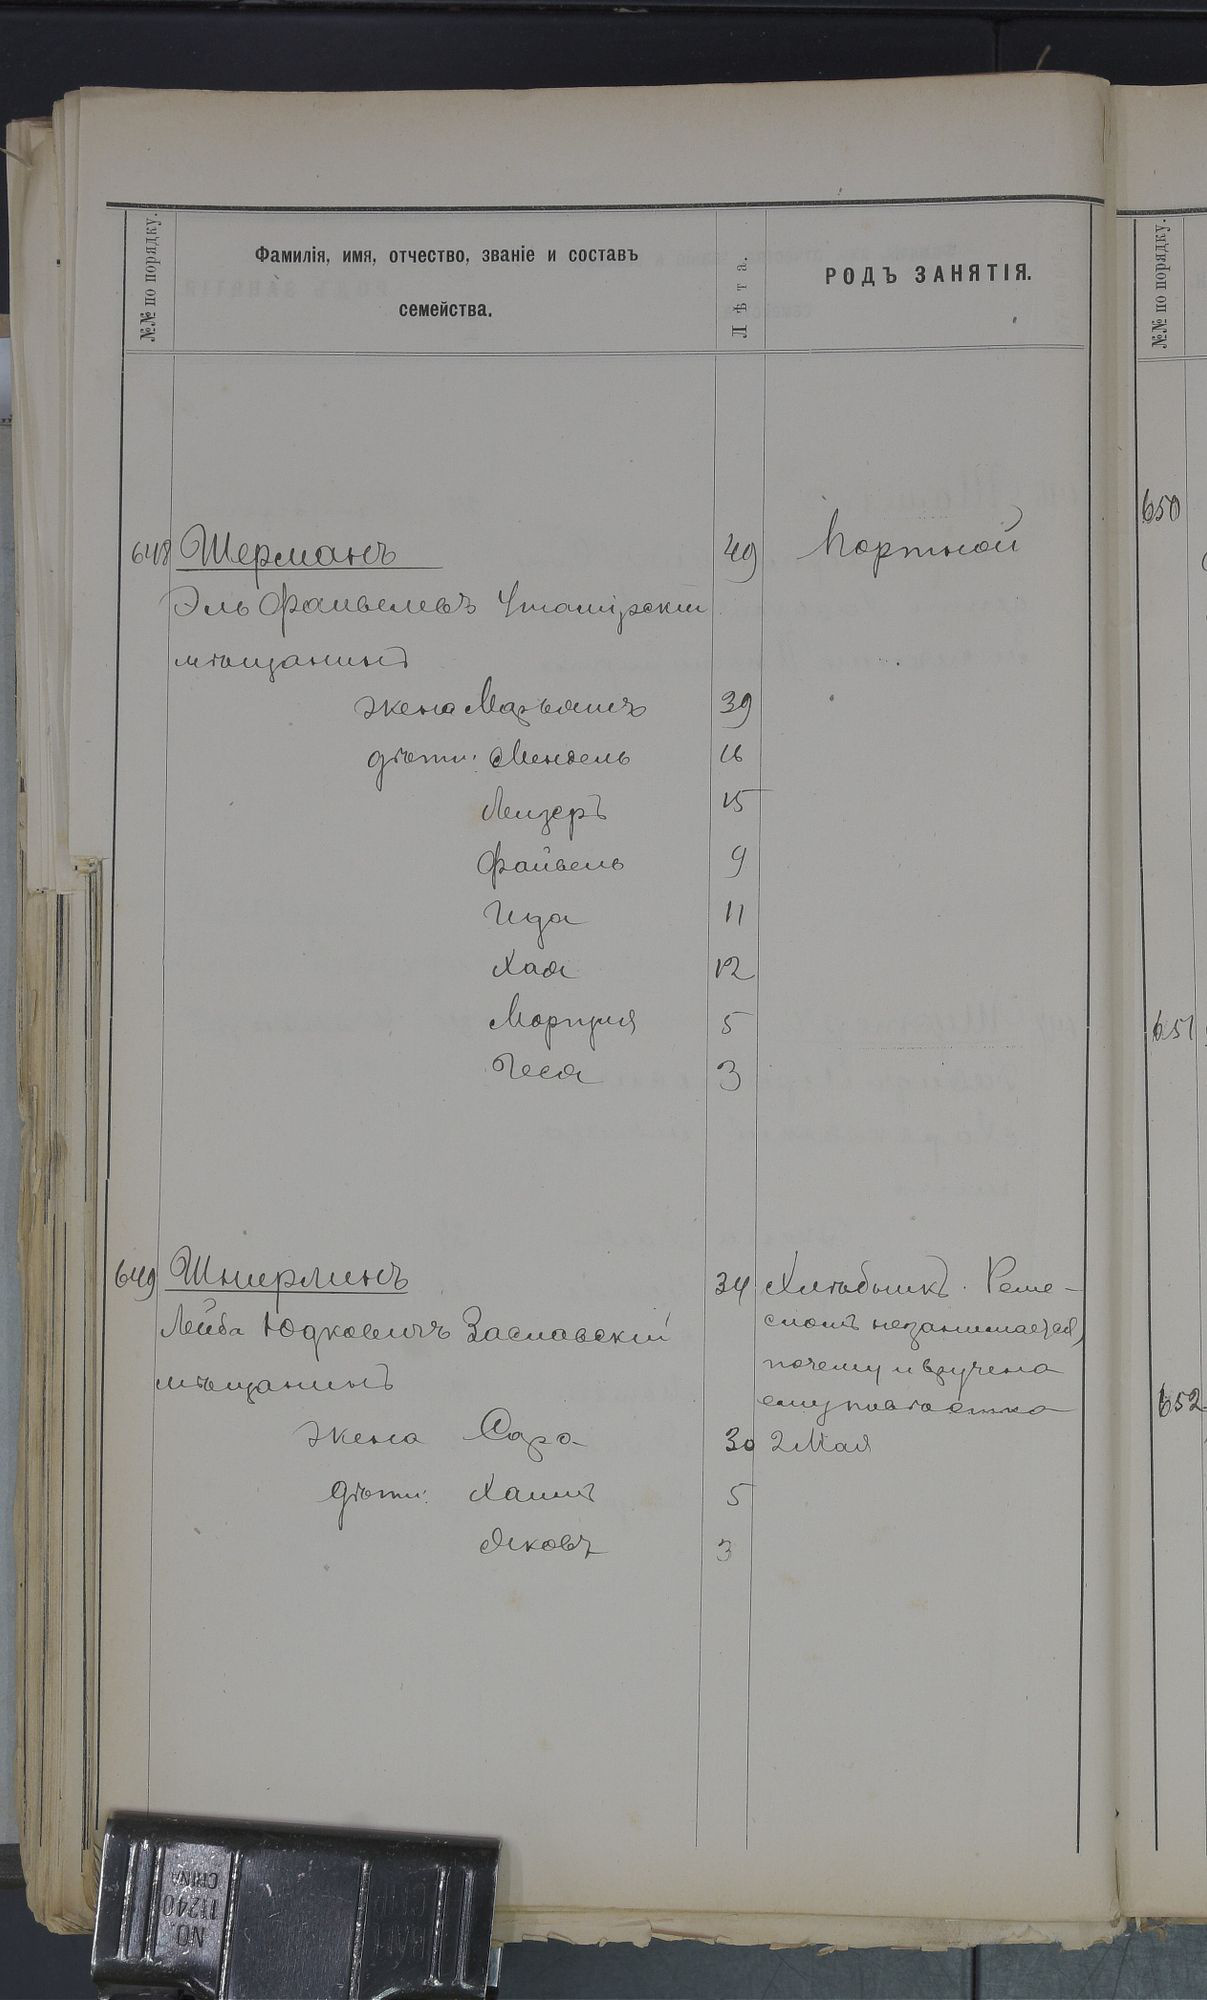 №№ по порядку.
Фамилія, имя, отчество, званіе и составъ
семейства.
Лѣта.
РОДЪ ЗАНЯТІЯ.
№№ по порядку.
648 Шерманъ 49 Портной
Эль Файвелевъ
мѣщанинъ
жена Марьямъ 39
дѣти: Мендель 16
Лейзеръ 15
Файвель 9
Ида 11
Хая 12
5
Геся 3
649 Шнирлинъ 34 Хлѣбникъ. Реме-
Лейба Юдковичъ Заславскій сломъ незанимается,
мѣщанинъ почему и вручена
ему повѣстка
жена Сара 30 2 Мая
дѣти: Хаимъ 5
Яковъ 3
650
651
652
NO.
11240
CHINA